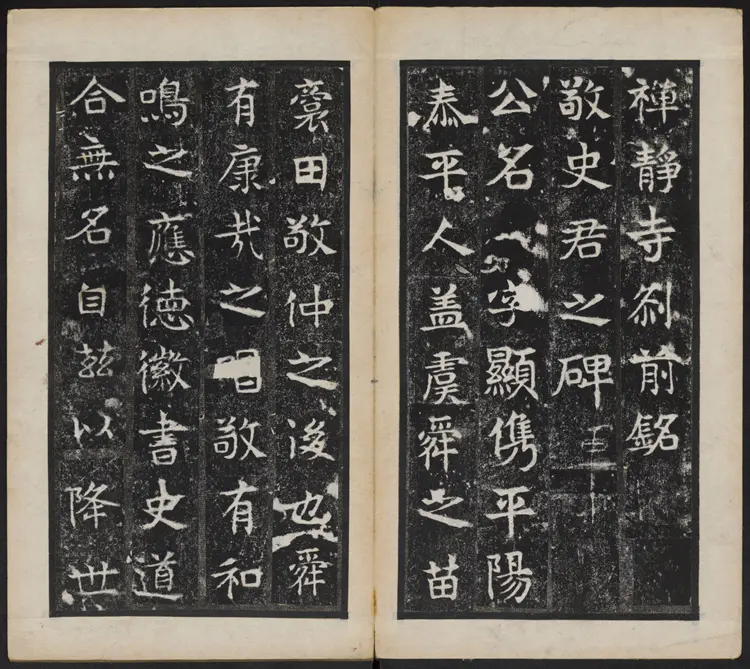 禪靜寺剎前銘
敬史君之碑
公名
字顯儁平陽
泰平人蓋虞舜之苗
裔田敬仲之後也舜
有康哉之唱敬有和
鳴之應德徽書史道
合無名自茲以降世